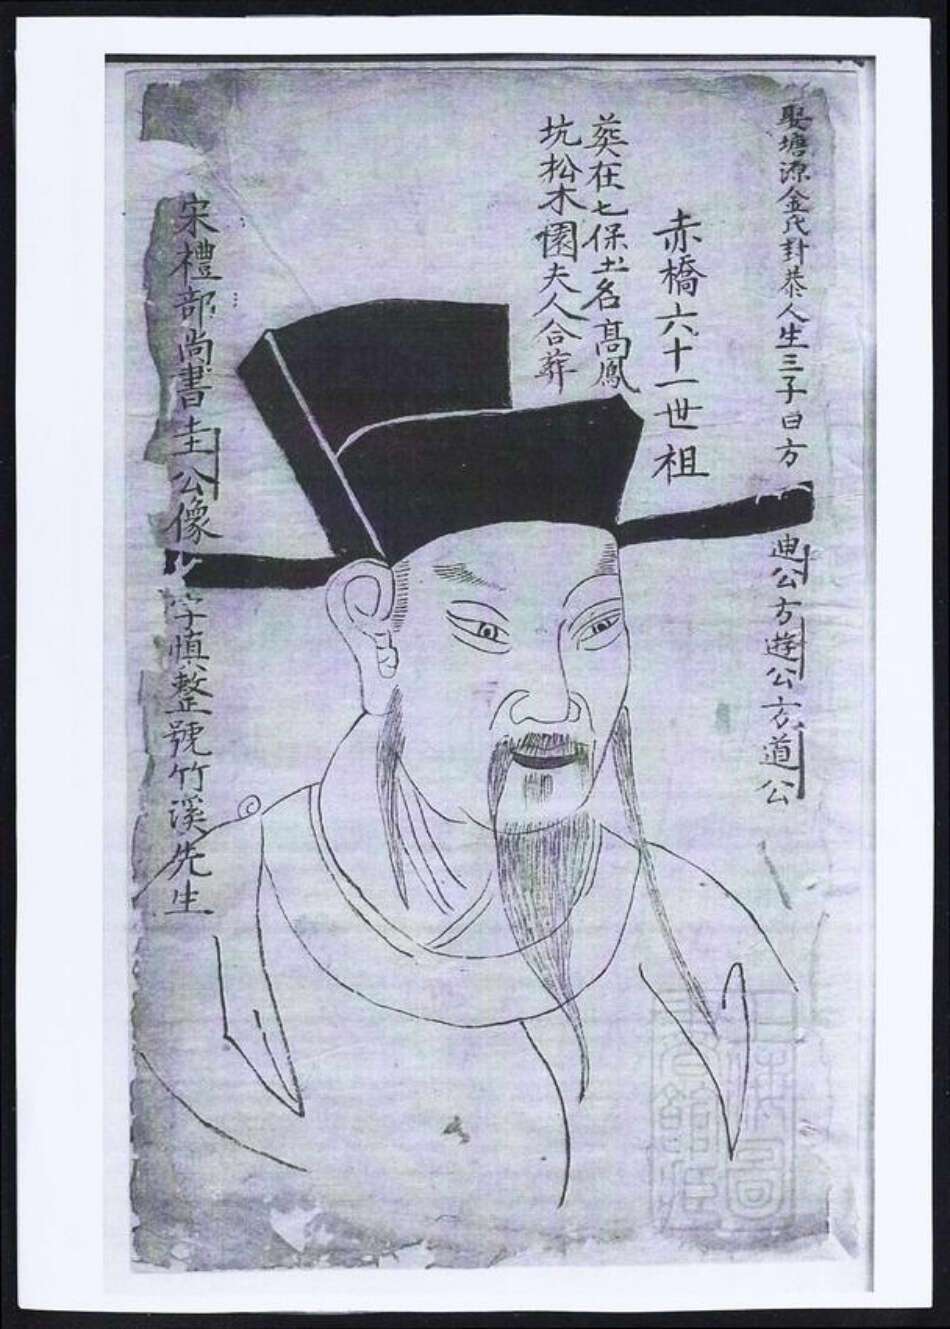 娶塘源金氏封恭人生三子曰方
迪公方遊公方道公
赤橋六十一世祖
葬在七保土名高鳳
坑松木園夫人合葬
宋禮部尚書圭公像
字慎整號竹溪先生